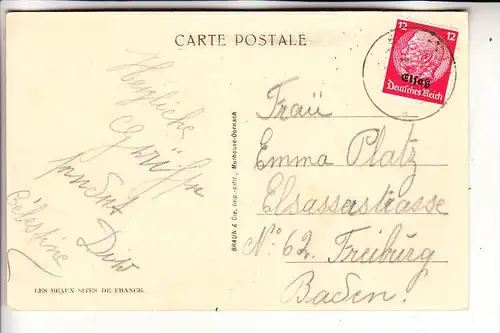 CARTE POSTALE
12 12
Elsaß
Deutsches Reich
Herzliche
Grüsse
sendet Dir
Célestine
Frau
Emma Platz
Elsasserstrasse
No. 62. Freiburg
Baden.
BRAUN & Cie, imp.-édit., Mulhouse-Dornach
LES BEAUX SITES DE FRANCE.